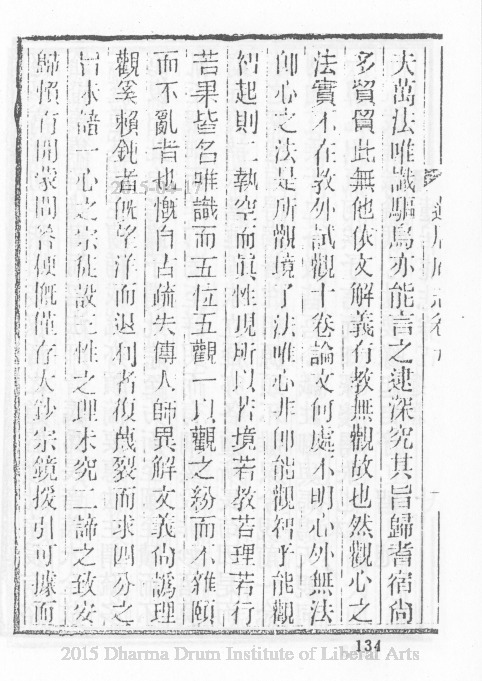 夫萬法唯識驅烏亦能言之逮深究其旨歸耆宿尚
多貿貿此無他依文解義有教無觀故也然觀心之
法實不在教外試觀十卷論文何處不明心外無法
即心之法是所觀境了法唯心非即能觀智乎能觀
智起則二執空而眞性現所以若境若教若理若行
若果皆名唯識而五位五觀一以觀之紛而不雜頤
而不亂者也慨自古疏失傳人師異解文義尚譌理
觀奚賴鈍者旣望洋而退利者復蔑裂而求四分之
旨不諳一心之宗徒設三性之理未究二諦之致安
歸惟有開蒙問答便慨僅存大鈔宗鏡援引可據而
134
2015-04-17
2015 Dharma Drum Institute of Liberal Arts